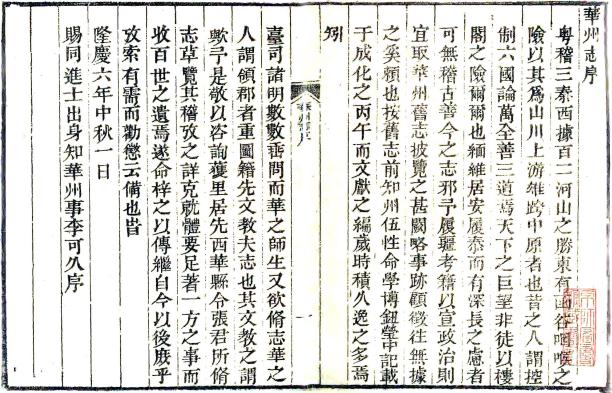 華州志序
粵稽三秦西據百二河山之勝東有函谷咽喉之
險以其為山川上游雄跨中原者也昔之人謂控
制六國論萬全善三道焉天下之巨望非徒以樓
閣之險爾爾也緬維居安履泰而有深長之慮者
可無稽古善今之志邪予履驪考籍以宣政治則
宜取華州舊志披覽之甚闕略事跡顧徵往無據
之奚賴也按舊志前知州伍性命學博鈕瑩中記載
于成化之丙午而文獻之編歲時積久逸之多焉
矧
臺司諸明數數垂問而華之師生又欲脩志華之
人謂領郡者重圖籍先文教夫志也其文教之謂
歟予是敬以咨詢獲里居先西華縣令張君所脩
志草覽其稽攷之詳克就體要足著一方之事而
收百世之遺焉遂命梓之以傳繼自今以後庶乎
攷索有需而勸懲云備也旹
隆慶六年中秋一日
賜同進士出身知華州事李可久序